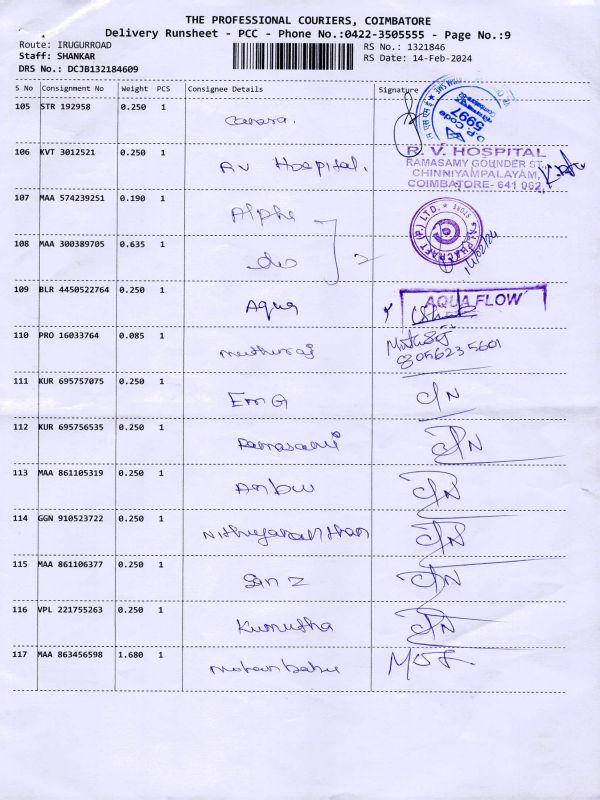 THE PROFESSIONAL COURIERS, COIMBATORE
Delivery Runsheet - PCC - Phone No.:0422-3505555 - Page No.:9
Route: IRUGURROAD
RS No.: 1321846
Staff: SHANKAR
RS Date: 14-Feb-2024
DRS No.: DCJB132184609
S No Consignment No Weight PCS Consignee Details Signature
105 STR 192958 0.250 1 Canara.
O.P. Code
5997
106 KVT 3012521 0.250 1 RV Hospital.
R. V. HOSPITAL
RAMASAMY GOUNDER ST,
CHINNIYAMPALAYAM,
COIMBATORE- 641 062.
107 MAA 574239251 0.190 1 Alpha
108 MAA 300389705 0.635 1 do 2
14/02/24
109 BLR 4450522764 0.250 1 Aqua
AQUA FLOW
110 PRO 16033764 0.085 1 Muthuraj
8056235601
111 KUR 695757075 0.250 1 EmG C/N
112 KUR 695756535 0.250 1 Ramasami C/N
113 MAA 861105319 0.250 1 Anbu C/N
114 GGN 910523722 0.250 1 Nithiyananthan C/N
115 MAA 861106377 0.250 1 San Z C/N
116 VPL 221755263 0.250 1 Kumutha C/N
117 MAA 863456598 1.680 1 Mohanbabu